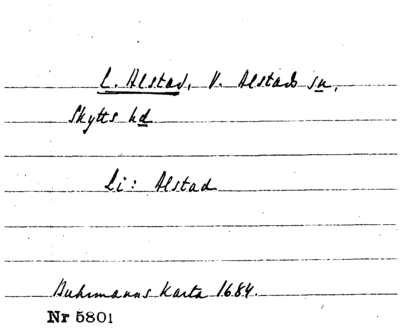 L. Alstad, V. Alstads sn,
Skytts hd
Li: Alstad
Buhrmanns Karta 1684.
Nr 5801